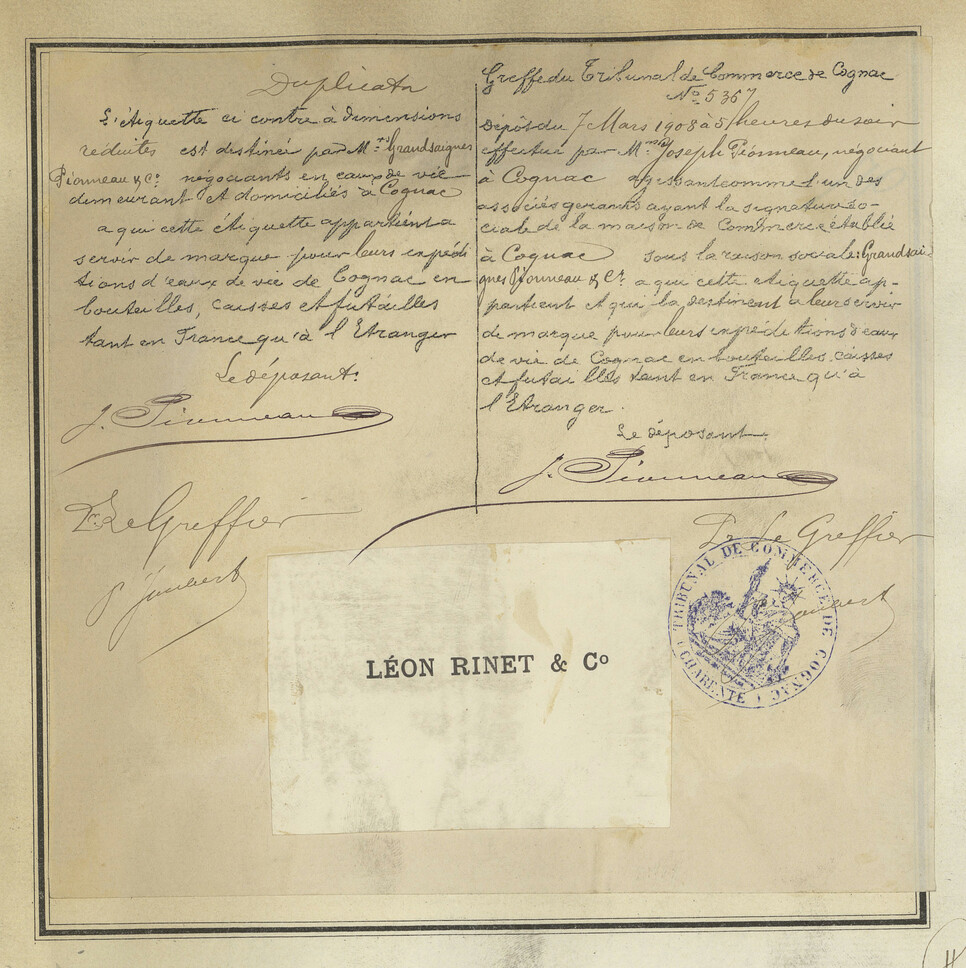 Duplicata
L'étiquette ci contre à dimensions
réduites est destinée par M.rs Grandsaignes
Pionneau & Co. négociants en eaux de vie
demeurant et domiciliés à Cognac
a qui cette étiquette appartient a
servir de marque pour leurs expédi
tions d'eaux de vie de Cognac en
bouteilles, caisses et futailles
tant en France qu'à l'Etranger
Le déposant.
J. Pionneau
Le Greffier
Joubert
Greffe du Tribunal de Commerce de Cognac
No. 5367
Dépôt du 7 Mars 1908 à 5 heures du soir
effectué par Mr. Joseph Pionneau, négociant
à Cognac agissant comme l'un des
associés gerants ayant la signature so-
ciale de la maison de Commerce établie
à Cognac sous la raison sociale: Grandsai-
gnes Pionneau & Co. a qui cette etiquette ap-
partient et qui la destinent a leur servir
de marque pour leurs expéditions d'eaux
de vie de Cognac en bouteilles, caisses
et futailles tant en France qu'à
l'Etranger.
Le déposant.
J. Pionneau
Le Greffier
Joubert
TRIBUNAL DE COMMERCE DE COGNAC
(CHARENTE)
LÉON RINET & Co